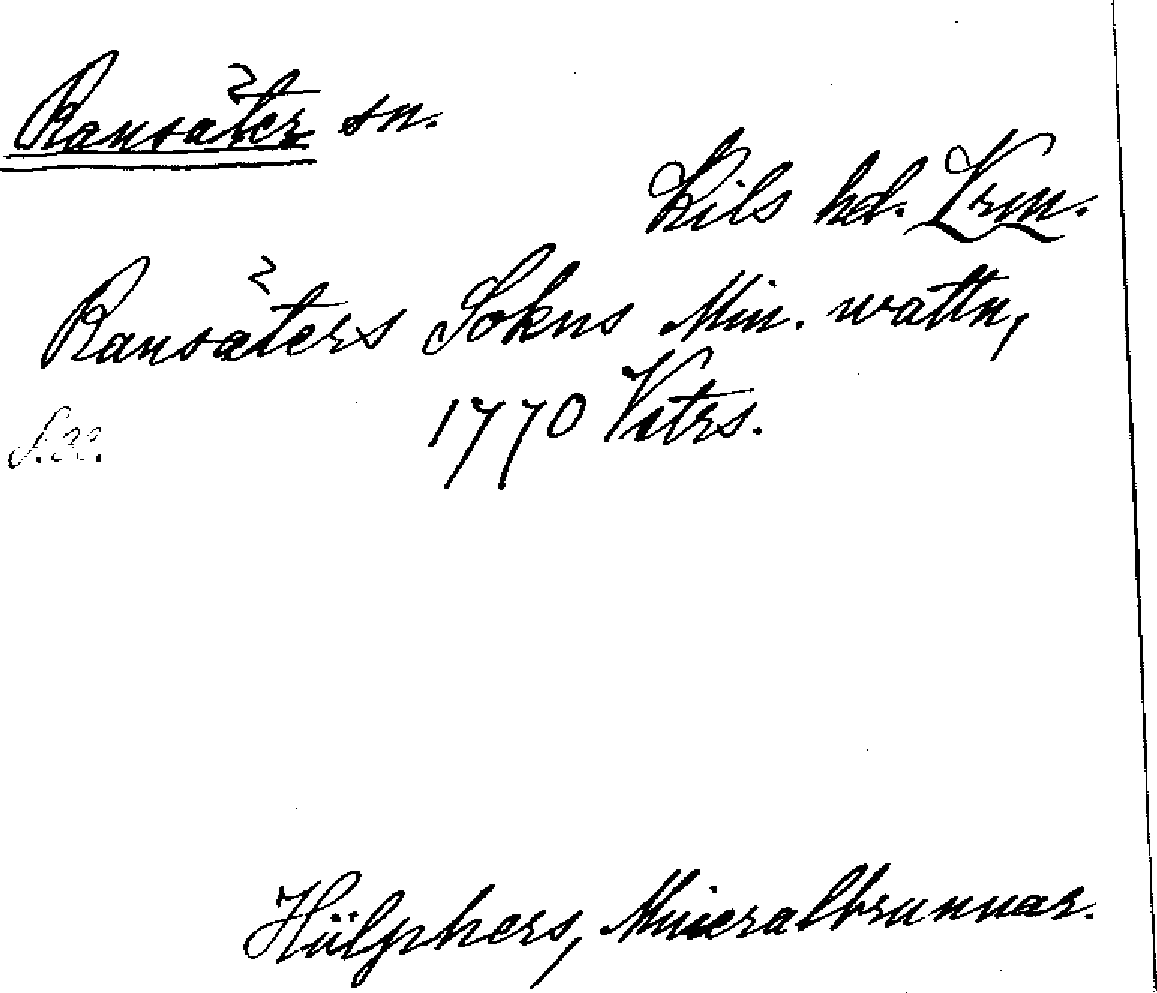 Ransäter sn.
Kils hd. Vrm.
Ransäters Sokns Min. wattn,
1770 Vitrs.
Hülphers, Mineralbrunnar.